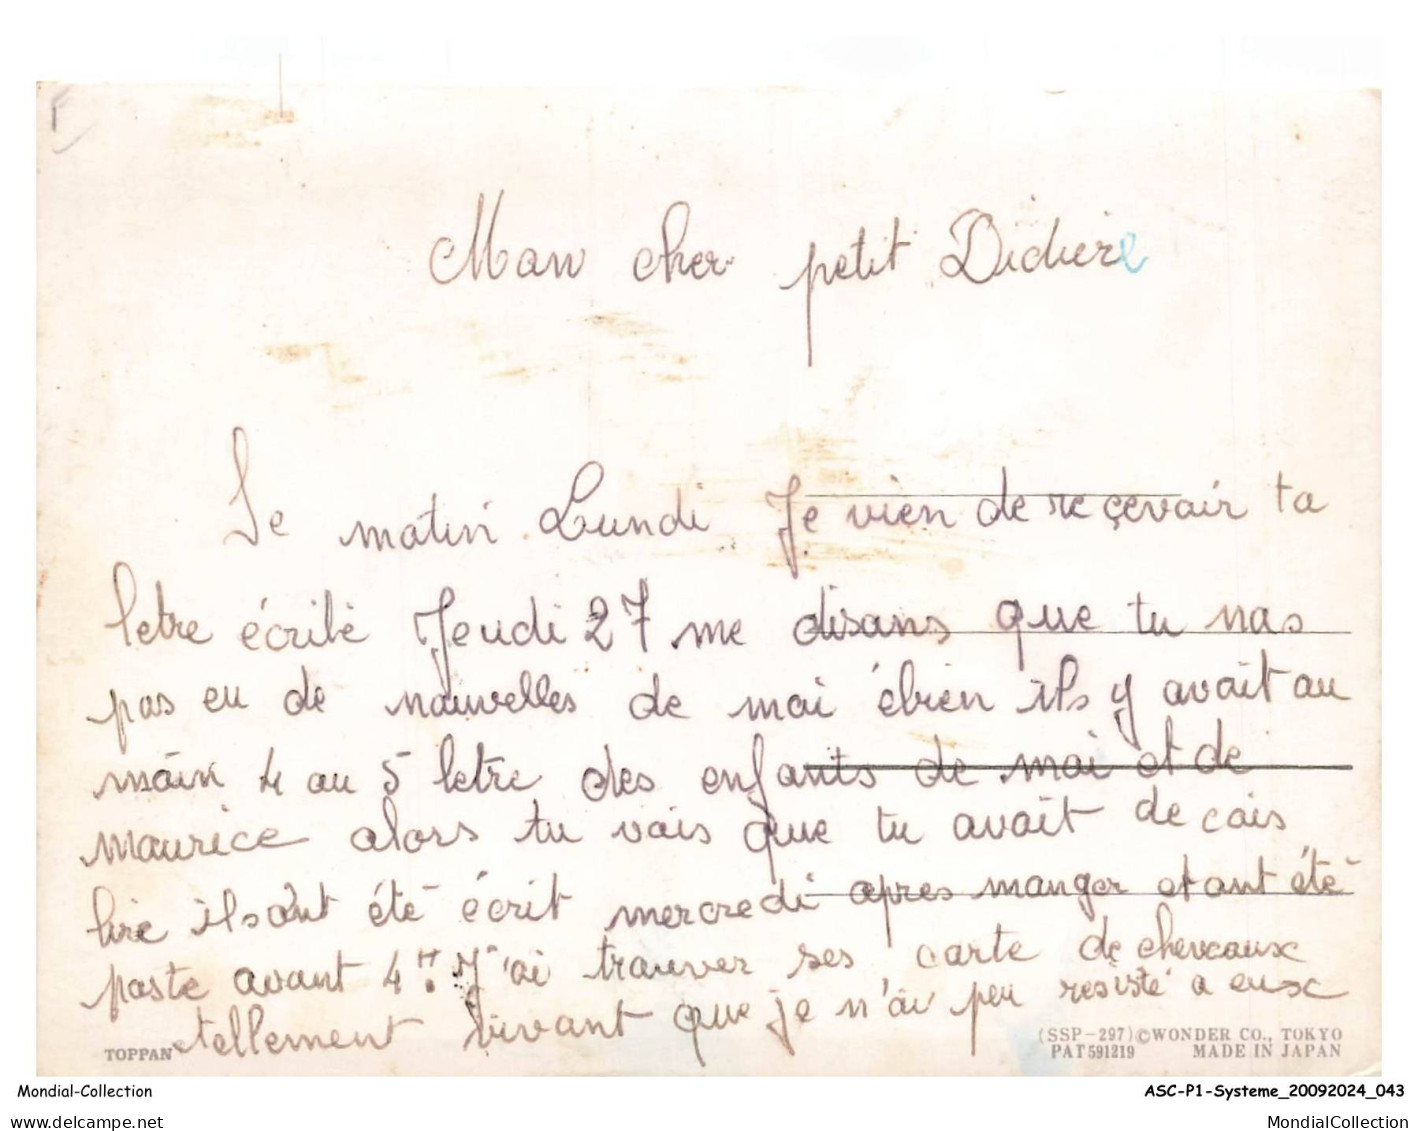 Mon cher petit Didier
Se matin Lundi Je vien de reçevoir ta
letre écrite Jeudi 27 me disans que tu nas
pas eu de nouvelles de moi ébien ils y avait au
moin 4 au 5 letre des enfants de moi et de
maurice alors tu vois que tu avait de cois
lire ils ont été écrit mercredi apres manger et ont été
poste avant 4H. J'ai trouver ses carte de cheveaux
tellement vivant que je n'ai peu resisté a eux
TOPPAN
(SSP-297)©WONDER CO., TOKYO
PAT591219 MADE IN JAPAN
Mondial-Collection ASC-P1-Systeme_20092024_043
www.delcampe.net MondialCollection